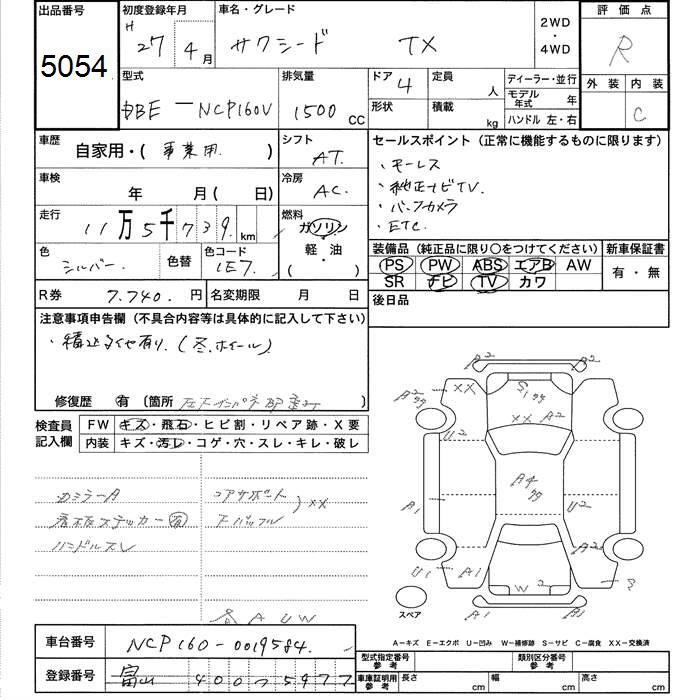 出品番号
5054
初度登録年月
H 27年 4月
車名・グレード
サクシード TX
2WD
・
4WD
評価点
R
型式
DBE-NCP160V
排気量
1500 cc
ドア 4
形状
定員 人
積載 kg
ディーラー・並行
モデル年式 年
ハンドル 左・右
外装 内装
C
車歴
自家用・(事業用)
シフト
AT.
車検
年 月(日)
冷房
AC.
走行
11万5千739km
燃料
ガソリン
・
軽・油
( )
色
シルバー
色替
色コード
1E7.
R券 7.740.円
名変期限 月 日
セールスポイント(正常に機能するものに限ります)
・キーレス
・純正ナビTV.
・バックカメラ
・ETC.
装備品(純正品に限り○をつけてください)
新車保証書
PS PW ABS エアB AW
SR ナビ TV カワ
有・無
後日品
注意事項申告欄(不具合内容等は具体的に記入して下さい)
・積込タイヤ有り.(冬.ホイール)
修復歴 有(箇所
検査員記入欄
FW キズ・飛石・ヒビ割・リペア跡・X要
内装 キズ・汚レ・コゲ・穴・スレ・キレ・破レ
コアサポート
XX
ステッカー
ハンドルスレ
A U W
A2 A2
XX
S1
U2
XX A2
A4
A1
U2
U1 A1
W2
3
A1
スペア
A-キズ E-エクボ U-凹み W-補修跡 S-サビ C-腐食 XX-交換済
車台番号 NCP160-0019584.
登録番号 富山 400 5977
型式指定番号 参考
類別区分番号 参考
車庫証明用 参考
長さ cm 幅 cm 高さ cm